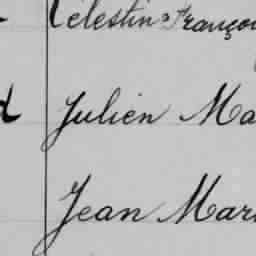 Célestin François
Julien Ma
Jean Mari